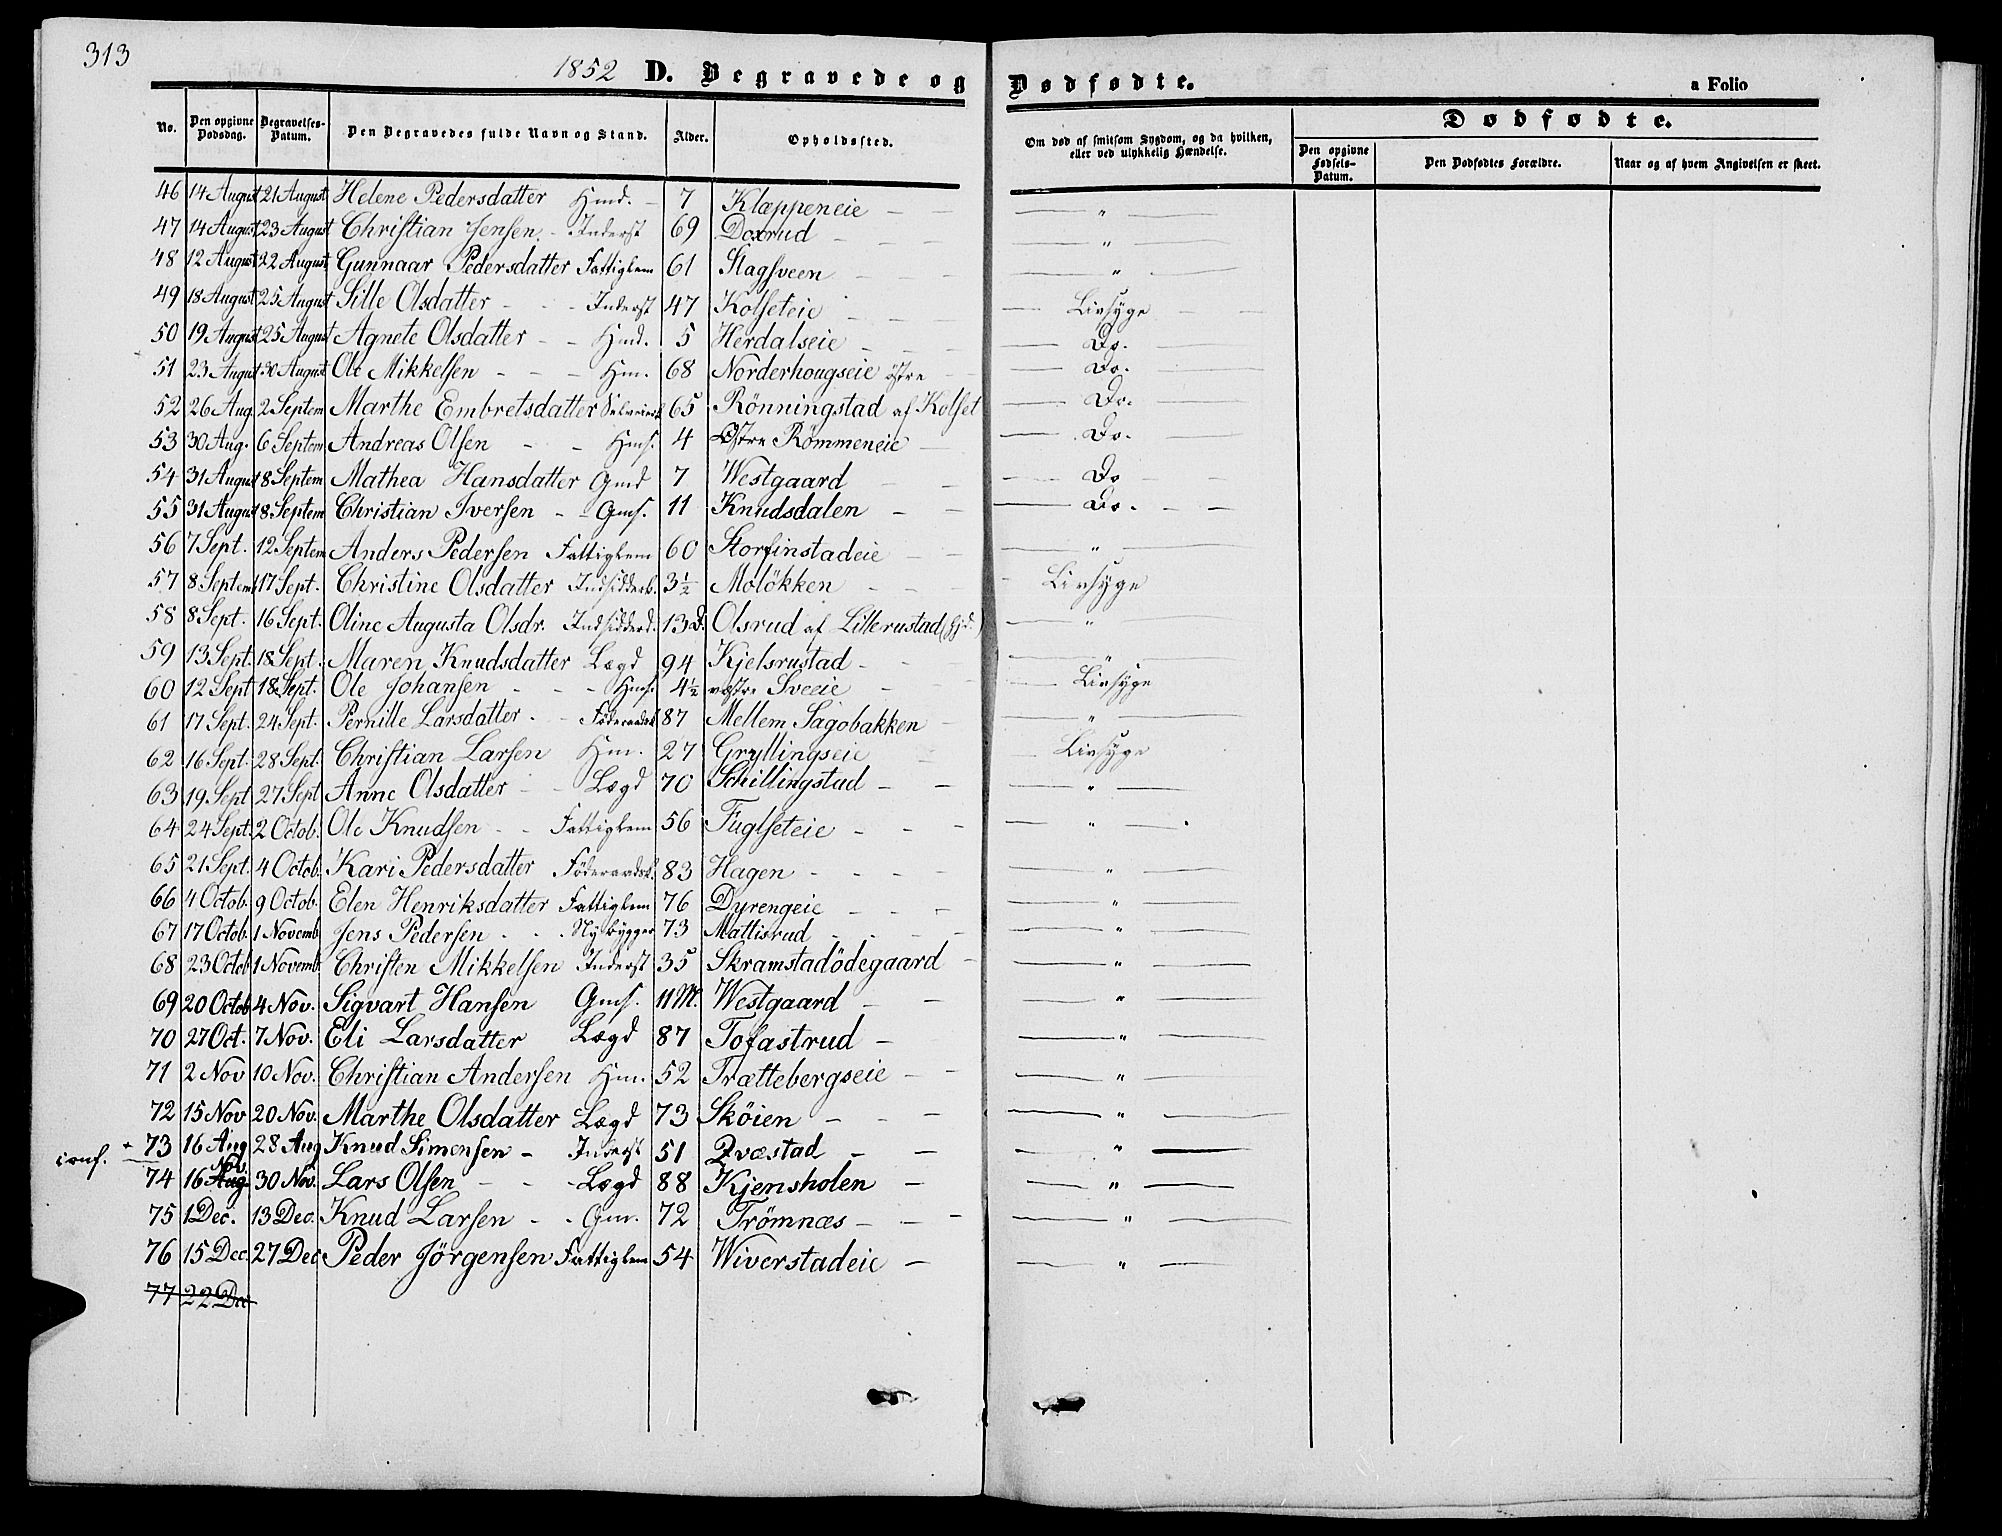 313
1852 D. Begravede og Dødfødte. a Folio
No. Den opgivne Dødsdag. Begravelses-Datum. Den Begravedes fulde Navn og Stand. Alder. Opholdssted. Om død af smitsom Sygdom, og da hvilken, eller ved ulykkelig Hændelse. Dødfødte.
Den opgivne Fødsels-Datum. Den Dødfødtes Forældre. Naar og af hvem Angivelsen er skeet.
46 14 August 21 August Helene Pedersdatter Hmd. - 7 Klæppeneie - - — " —
47 14 August 23 August Christian Jensen. - Inderst 69 Doxrud - - - — " —
48 12 August 22 August Gunnaar Pedersdatter Fattiglem 61 Slagsveen - - - — " —
49 18 August 25 August Sille Olsdatter - - - Inderst 47 Kolseteie - - - — Livsyge - -
50 19 August 25 August Agnete Olsdatter - - Hmd. 5 Herdalseie - - - — Do. —
51 23 August 30 August Ole Mikkelsen - - - Hm. 68 Norderhougseie östre — Do. —
52 26 Aug. 2 Septem Marthe Embretsdatter 65 Rönningstad af Kolset — Do. —
53 30 Aug. 6 Septem Andreas Olsen - - Hms. 4 Östre Römmeneie - — Do. —
54 31 August 8 Septem Mathea Hansdatter Gmd 7 Westgaard - - — Do - -
55 31 August 8 Septem Christian Iversen - - Gms. 11 Knudsdalen - - — Do. - -
56 7 Sept. 12 Septem Anders Pedersen Fattiglem 60 Storfinstadeie - - — " —
57 8 Septem 17 Sept. Christine Olsdatter Indsidderb. 3½ Molökken - - - - Livsyge
58 8 Sept. 16 Sept. Oline Augusta Olsdr. Indsidderd. 13 D. Olsrud af Lillerustad (hjd.) — " —
59 13 Sept. 18 Sept. Maren Knudsdatter Lægd 94 Kjelsrustad - - - — " —
60 12 Sept 18 Sept. Ole Johansen - - - Hms. 4½ vestre Sveeie - - — Livsyge
61 17 Sept. 24 Sept. Pernille Larsdatter. - Föderaadsk 87 Mellem Sagobakken - — " —
62 16 Sept. 28 Sept. Christian Larsen Hm. 27 Gryllingseie — Livsyge
63 19 Sept 27 Sept Anne Olsdatter - - Lægd 70 Schillingstad - - — " —
64 24 Sept. 2 Octob. Ole Knudsen - - Fattiglem 56 Fuglseteie - - - — " —
65 21 Sept. 4 Octob. Kari Pedersdatter Föderaadsk. 83 Hagen - - - - — " —
66 4 Octob. 9 Octob. Elen Henriksdatter Fattiglem 76 Dyrengeie - - - — " —
67 17 Octob. 1 Novemb Jens Pedersen - - . Nybygger 73 Mattisrud - - - - — " —
68 23 Octob 1 Novemb. Christen Mikkelsen Inderst 35 Skramstadödegaard - — " —
69 20 Octob 4 Nov. Sigvart Hansen Gms. 11 M. Westgaard - - — " —
70 27 Oct. 7 Nov. Eli Larsdatter Lægd 87 Tofastrud - — " —
71 2 Nov 10 Nov. Christian Andersen Hm. 52 Trættebergseie - - — " —
72 15 Nov 20 Nov. Marthe Olsdatter Lægd 73 Sköien - - — " —
conf. + 73 16 Aug 28 Aug Knud Simensen - Inderst 51 Qvæstad - - " —
74 16 Aug. Nov. 30 Nov. Lars Olsen - - - Lægd 88 Kjensholen - — " —
75 1 Dec. 13 Dec. Knud Larsen - - Gm. 72 Trömnæs - - - — " —
76 15 Dec. 27 Dec Peder Jörgensen Fattiglem 54 Wiverstadeie - — " —
77 22 Dec